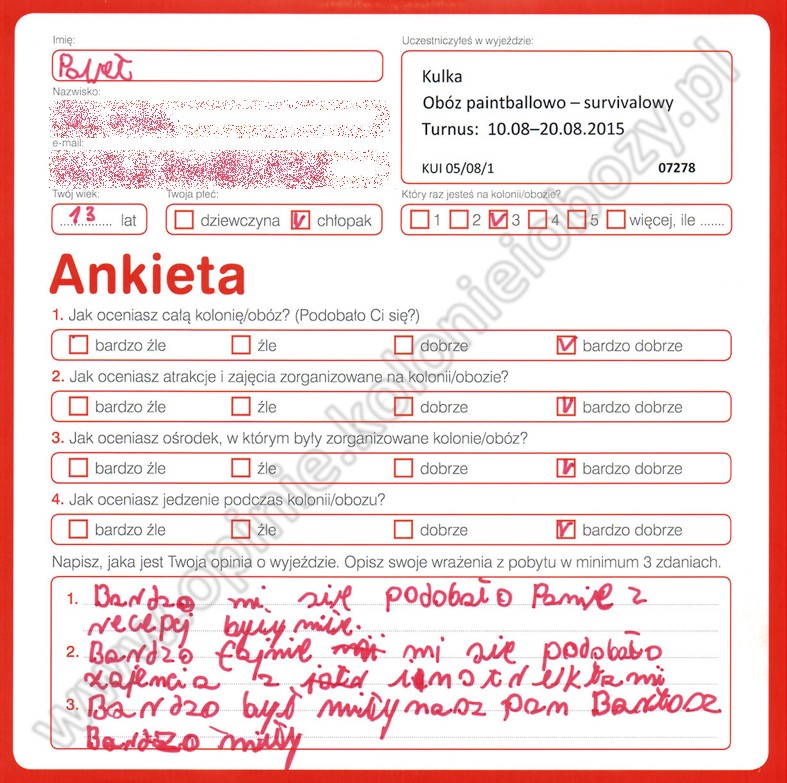 Imię:
Paweł
Uczestniczyłeś w wyjeździe:
Kulka
Obóz paintballowo – survivalowy
Turnus: 10.08–20.08.2015
KUI 05/08/1 07278
Nazwisko:
e-mail:
Twój wiek:
13 lat
Twoja płeć:
dziewczyna chłopak
Który raz jesteś na kolonii/obozie?
1 2 3 4 5 więcej, ile .......
Ankieta
1. Jak oceniasz całą kolonię/obóz? (Podobało Ci się?)
bardzo źle źle dobrze bardzo dobrze
2. Jak oceniasz atrakcje i zajęcia zorganizowane na kolonii/obozie?
bardzo źle źle dobrze bardzo dobrze
3. Jak oceniasz ośrodek, w którym były zorganizowane kolonie/obóz?
bardzo źle źle dobrze bardzo dobrze
4. Jak oceniasz jedzenie podczas kolonii/obozu?
bardzo źle źle dobrze bardzo dobrze
Napisz, jaka jest Twoja opinia o wyjeździe. Opisz swoje wrażenia z pobytu w minimum 3 zdaniach.
1. Bardzo mi się podobało Panie z
recepj były miłe.
2. Bardzo fajnie mi się podobało
zajencia z instruktami
3. Bardzo był miły nasz pan Bartosz
Bardzo miły
www.opinie.kolonieiobozy.pl